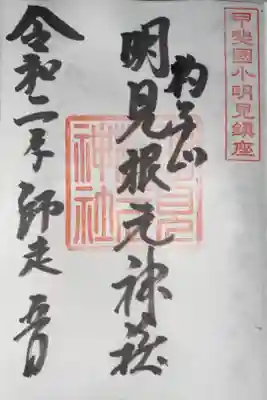 甲斐國小明見鎮座
杓子山
明見根元神
令和二年師走吉日
神社